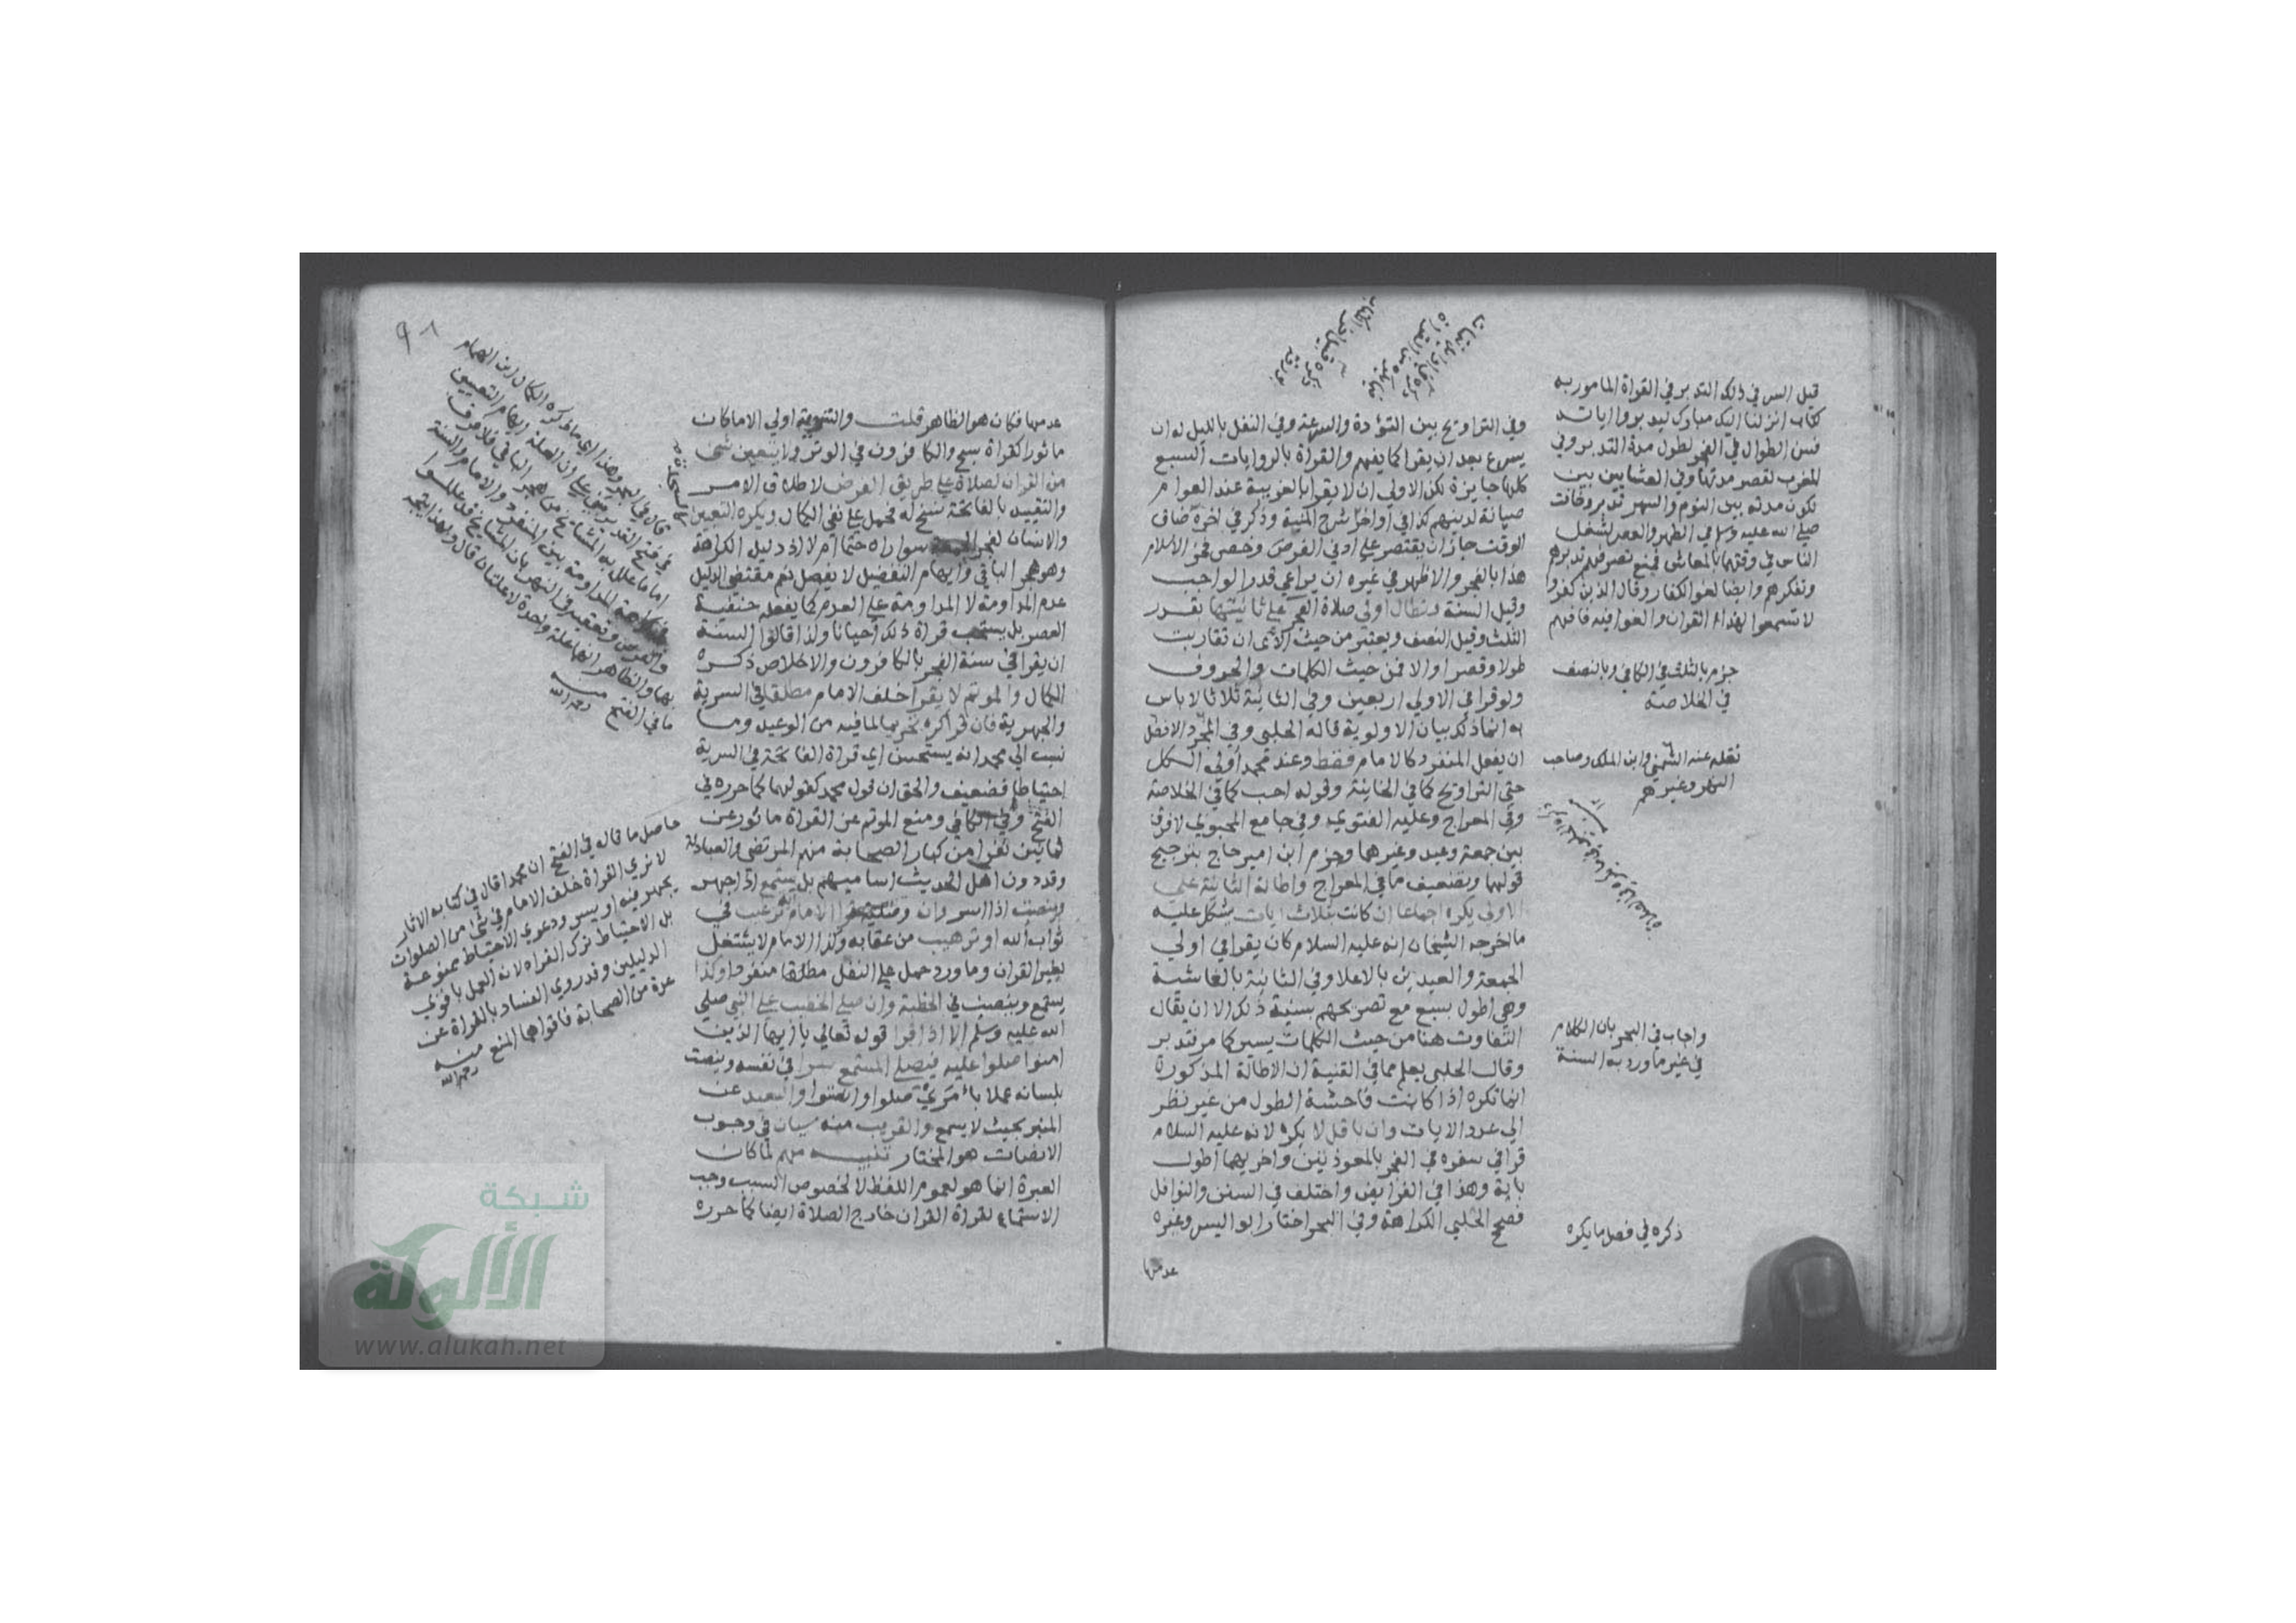 وفي التراويح بين التؤدة والسرعة وفي النفل بالليل له ان
يسرع بعد ان يقرا كما يفهم والقراة بالروايات السبع
كلها جايزة لكن الاولي ان لا يقرا بالغريبة عند العوام
صيانة لدينهم كذا في اواخر شرح المنية وذكر في اخره ضاف
الوقت جاز ان يقتصر علي ادني الفرض وخص فخر الاسلام
هذا بالفجر والاظهر في غيره ان يراعي قدر الواجب
وقيل السنة وتطال اولي صلاة الفجر علي ثانيتها بقدر
الثلث وقيل النصف ويعتبر من حيث الآي ان تقاربت
طولا وقصرا والا فمن حيث الكلمات والحروف
ولو قرا في الاولي اربعين وفي الثانية ثلاثا لا باس
به انما ذلك بيان الاولوية قاله الحلبي وفي المجرد الافضل
ان يفعل المنفرد كالامام فقط وعند محمد أولي الكل
حتي التراويح كما في الخانية وقوله احب كما في الخلاصة
وفي المعراج وعليه الفتوي وفي جامع المحبوبي لا فرق
بين جمعة وعيد وغيرهما وجزم ابن امير حاج بترجيح
قولهما وتضعيف ما في المعراج واطالة الثانية علي
الاولي يكره اجماعا ان كانت بثلاث ايات يشكل عليه
ما اخرجه الشيخان انه عليه السلام كان يقرا في اولي
الجمعة والعيدين بالاعلا وفي الثانية بالغاشية
وهي اطول بسبع مع تصريحهم بسنية ذلك الا ان يقال
التفاوت هنا من حيث الكلمات يسير كما مر فتدبر
وقال الحلبي يعلم مما في القنية ان الاطالة المذكورة
انما تكره اذا كانت فاحشة الطول من غير نظر
الي عدد الايات وان قل لا يكره لانه عليه السلام
قرا في سفره في الفجر بالمعوذتين واخريهما اطول
باية وهذا في الفرايض واختلف في السنن والنوافل
فصحح الحلبي الكراهة وفي البحر اختار ابو اليسر وغيره
عدمها
قيل السر في ذلك التدبر في القراة المامور به
كتاب انزلناه اليك مبارك ليدبروا اياته
فسن الطوال في الفجر لطول مدة التدبر وفي
المغرب لقصر مدتها وفي العشاءين بين
تكون مدته بين النوم والسهر تدبر وخافت
صلي الله عليه وسلم في الظهر والعصر لشغل
الناس في وقتهما بالمعاش فيمنع تصرفهم تدبرهم
وتفكرهم وايضا لغو الكفار وقال الذين كفروا
لا تسمعوا لهذا القران والغوا فيه فافهم
جزم بالثلث في الكافي وبالنصف
في الخلاصة
نقله عنه الشمني وابن الملك وصاحب
النهر وغيرهم
واجاب في البحر بان الكلام
في غير ما ورد به السنة
ذكره في فصل ما يكره
٩٨
عدمها فكان هو الظاهر قلت والتسوية اولي الا ما كان
ماثورا كقراة سبح والكافرون في الوتر ولا يتعين شي
من القران لصلاة علي طريق الفرض لاطلاق الامر
والتقييد بالفاتحة نسخ له فحمل علي نفي الكمال ويكره التعيين
والانسان لفجر الجمعة سوا راه حتما ام لا اذ دليل الكراهة
وهو هجر الباقي وايهام التفضيل لا يفصل ثم مقتضي الدليل
عدم المداومة لا المداومة علي العدم كما يفعله حنفية
العصر بل يستحب قراة ذلك أحيانا ولذا قالوا السنة
ان يقرا في سنة الفجر بالكافرون والاخلاص ذكره
الكمال والموتم لا يقرا خلف الامام مطلقا في السرية
والجهرية فان قرا كره تحريما لما فيه من الوعيد وما
نسب الي محمد انه يستحسن اي قراة الفاتحة في السرية
احتياطا فضعيف والحق ان قول محمد كقولهما كما حرره في
الفتح وفي الكافي ومنع الموتم عن القراة ماثور عن
ثمانين نفرا من كبار الصحابة منهم المرتضي والعبادلة
وقد دون اهل الحديث اساميهم بل يستمع اذا جهر
وينصت اذا اسر وان قرا الامام ترغيب في
ثواب الله او ترهيب من عقابه وكذا الامام لا يشتغل
بغير القران وما ورد حمل علي النفل مطلقا منفردا وكذا
يستمع وينصت في الخطبة وان صلي الخطيب علي النبي صلي
الله عليه وسلم الا اذا قرا قوله تعالي يا ايها الذين
امنوا صلوا عليه فيصلي المستمع سرا في نفسه وينصت
بلسانه عملا بامري صلوا وانصتوا والبعيد عن
المنبر بحيث لا يسمع والقريب منه سيان في وجوب
الانصات هو المختار تنبيه مهم لما كان
العبرة انما هو لعموم اللفظ لا لخصوص السبب وجب
الاستماع لقراة القران خارج الصلاة ايضا كما حرره
قال في البحر وهذا اي ما ذكره الكمال ابن الهمام
في فتح القدير مبني علي ان العلة ايهام التعيين
اما ما علل به المشايخ من هجر الباقي فلا فرق
المداومة بين المنفرد والامام والسنة
والفرض وتعقبه في النهر بان المشايخ قد عللوا
بهما والظاهر انهما علة واحدة لا علتان قال وبهذا يتجه
ما في الفتح منه رحمه الله
حاصل ما قاله في الفتح ان محمدا قال في كتابه الاثار
لا نري القراة خلف الامام في شي من الصلوات
يجهر فيه او يسر ودعوي الاحتياط ممنوعة
بل الاحتياط ترك القراه لانه العمل باقوي
الدليلين وقد روي الفساد بالقراة عن
عدة من الصحابة فاقواها المنع منه
رحمه الله
شبكة
الألوكة
www.alukah.net